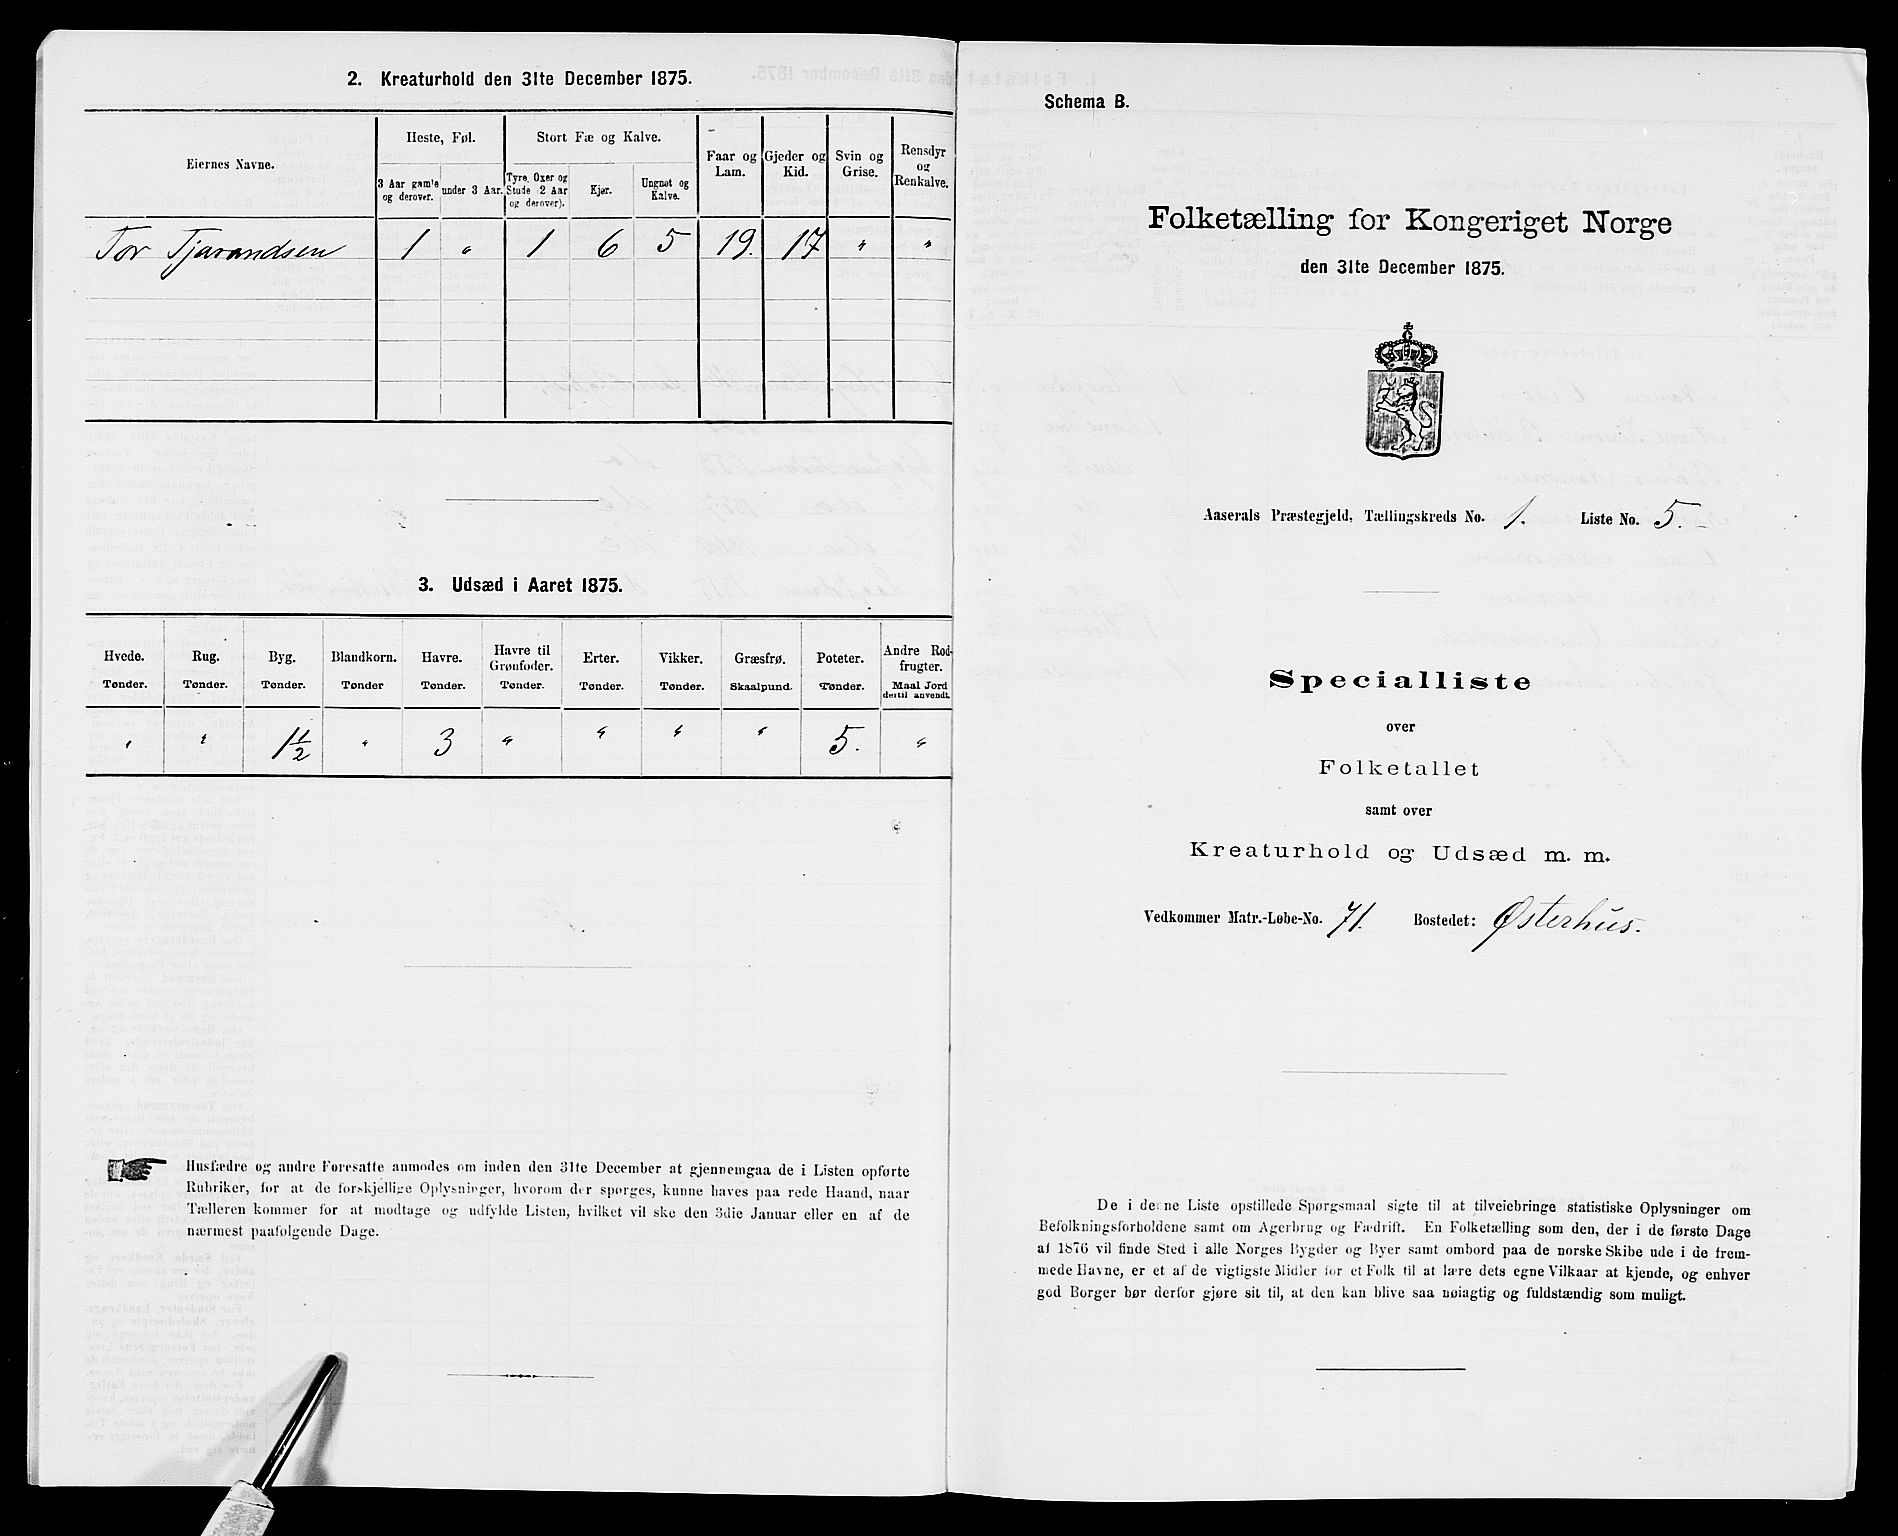 2. Kreaturhold den 31te December 1875.
Eiernes Navne.
Heste, Føl.
3 Aar gamle og derover.
under 3 Aar.
Stort Fæ og Kalve.
Tyre, Oxer og Stude (2 Aar og derover).
Kjør.
Ungnøt og Kalve.
Faar og Lam.
Gjeder og Kid.
Svin og Grise.
Rensdyr og Renkalve.
Tor Tjarandsen 1 " 1 6 5 19. 17 " "
3. Udsæd i Aaret 1875.
Hvede. Rug. Byg. Blandkorn. Havre. Havre til Grønfoder. Erter. Vikker. Græsfrø. Poteter. Andre Rodfrugter.
Tønder. Tønder. Tønder. Tønder Tønder. Tønder. Tønder. Tønder. Skaalpund. Tønder. Maal Jord dertil anvendt.
" " 1½ " 3 " " " " 5. "
Husfædre og andre Foresatte anmodes om inden den 31te December at gjennemgaa de i Listen opførte
Rubriker, for at de forskjellige Oplysninger, hvorom der spørges, kunne haves paa rede Haand, naar
Tælleren kommer for at modtage og udfylde Listen, hvilket vil ske den 3die Januar eller en af de
nærmest paafølgende Dage.
Schema B.
Folketælling for Kongeriget Norge
den 31te December 1875.
Aaserals Præstegjeld, Tællingskreds No. 1. Liste No. 5.
Specialliste
over
Folketallet
samt over
Kreaturhold og Udsæd m. m.
Vedkommer Matr.-Løbe-No. 71. Bostedet: Østerhus.
De i denne Liste opstillede Spørgsmaal sigte til at tilveiebringe statistiske Oplysninger om
Befolkningsforholdene samt om Agerbrug og Fædrift. En Folketælling som den, der i de første Dage
af 1876 vil finde Sted i alle Norges Bygder og Byer samt ombord paa de norske Skibe ude i de frem-
mede Havne, er et af de vigtigste Midler for et Folk til at lære dets egne Vilkaar at kjende, og enhver
god Borger bør derfor gjøre sit til, at den kan blive saa nøiagtig og fuldstændig som muligt.